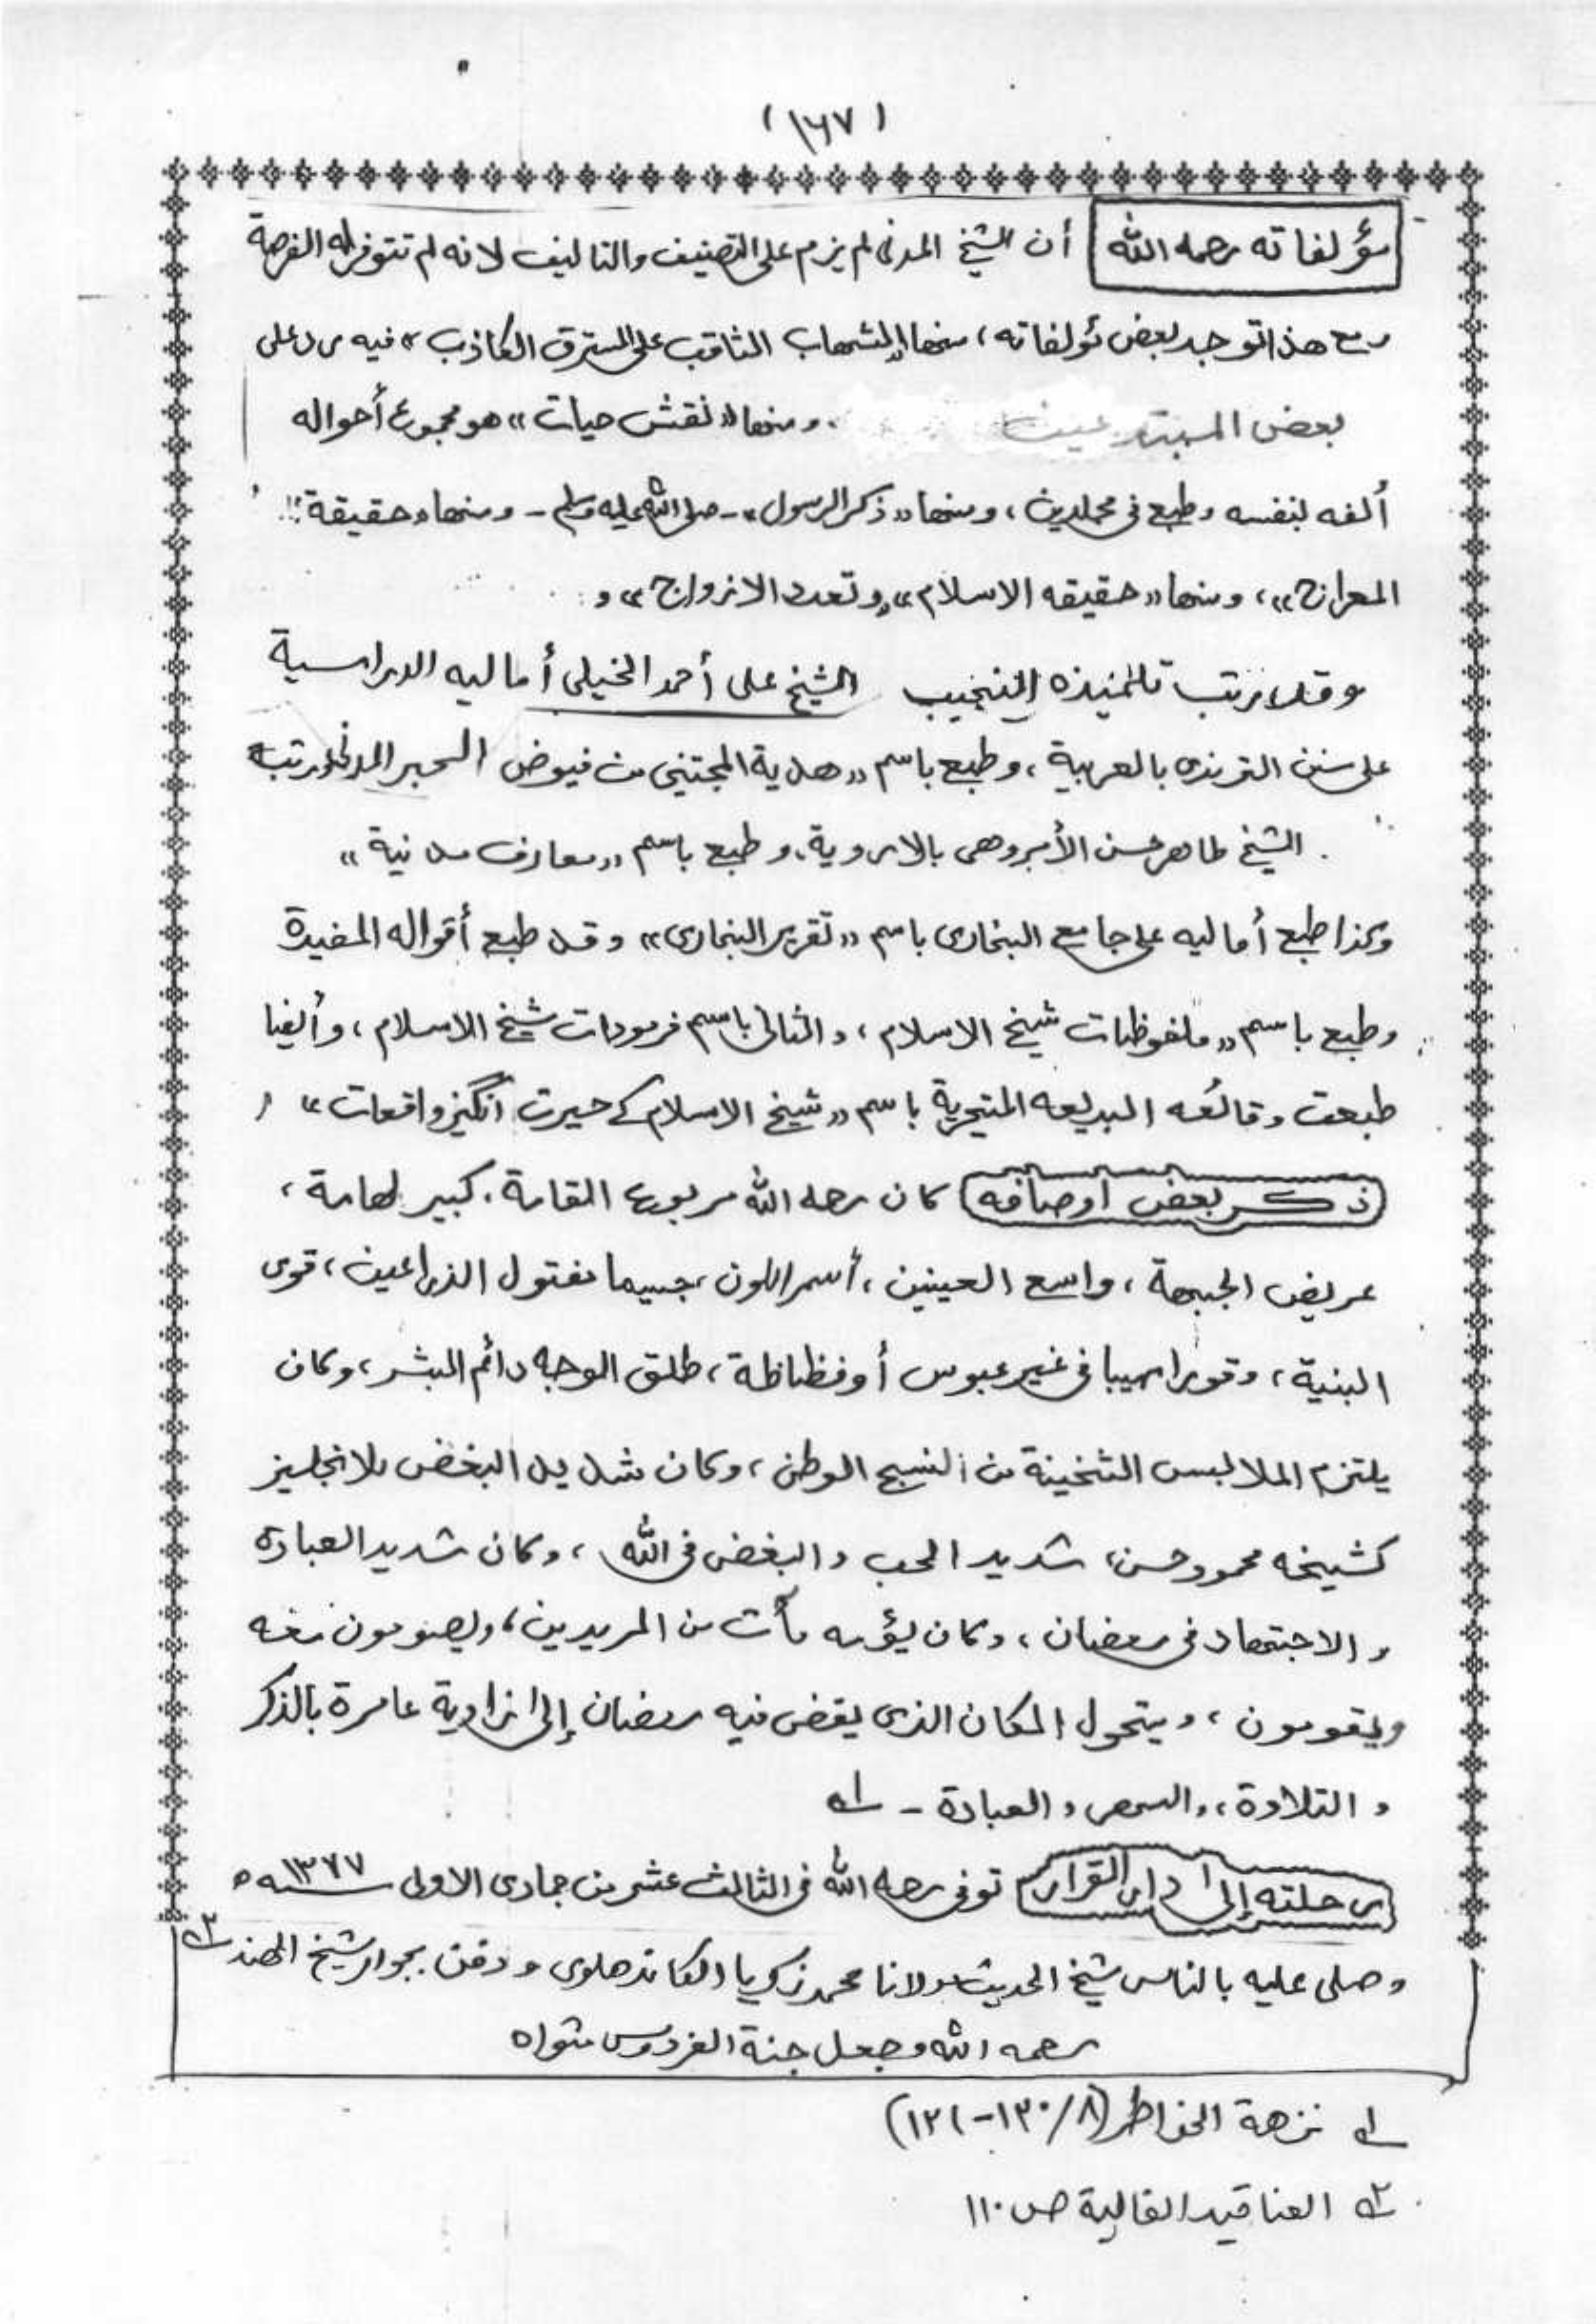 (١٦٧)
مؤلفاته رحمه الله أن الشيخ المدني لم يزم على التصنيف والتاليف لانه لم تتوفر له الفرصة
ومع هذا توجد بعض مؤلفاته، منها «الشهاب الثاقب على المسترق الكاذب» فيه رد على
بعض المبتدعين ، ومنها «نقش حيات» هو مجموع أحواله
ألفه بنفسه وطبع في مجلدين، ومنها «ذكر الرسول» - صلى الله عليه وسلم - ومنها «حقيقة
المعراج»، ومنها «حقيقه الاسلام» و تعدد الازواج» و
وقد رتب تلميذه النجيب الشيخ على أحمد الخيلى أماليه الدراسية
على سنن الترمذى بالعربية، وطبع باسم «هدية المجتنى من فيوض الحبر المدنى ورتبه
الشيخ طاهر حسن الأمروهى بالاردية، وطبع باسم «معارف مدنية»
وكذا طبع أماليه على جامع البخارى باسم «تقرير البخارى» وقد طبع أقواله المفيدة
وطبع باسم «ملفوظات شيخ الاسلام، والثانى باسم فرمودات شيخ الاسلام، وأيضا
طبعت وقائعه البديعه المتيحرية باسم «شيخ الاسلام كے حيرت انگيز واقعات»
ذكر بعض اوصافه كان رحمه الله مربوع القامة، كبير لهامة،
عريض الجبهة، واسع العينين، أسمر اللون، جسيما مفتول الذراعين، قوى
البنية، وقورا مهيبا فى غير عبوس أو فظاظة، طلق الوجه دائم البشر، وكان
يلتزم الملابس الثخينة من النسيج الوطنى، وكان شديد البغض للانجليز
كشيخه محمود حسن، شديد الحب والبغض فى الله، وكان شديد العبادة
والاجتهاد فى رمضان، وكان يؤمه مآت من المريدين، ويصومون معه
ويقومون، ويتحول المكان الذى يقضى فيه رمضان إلى زاوية عامرة بالذكر
والتلاوة، والسهر والعبادة - ١ه
رحلته إلى دار القرار توفى رحمه الله فى الثالث عشر من جمادى الاولى سنه ١٣٧٧ ه
وصلى عليه بالناس شيخ الحديث مولانا محمد زكريا الكاندهلوى و دفن بجوار شيخ الهند ٢ه
رحمه الله وجعل جنة الفردوس مثواه
١ه نزهة الخواطر (٨/١٣٠-١٣١)
٢ه العناقيد الغالية ص ١١٠